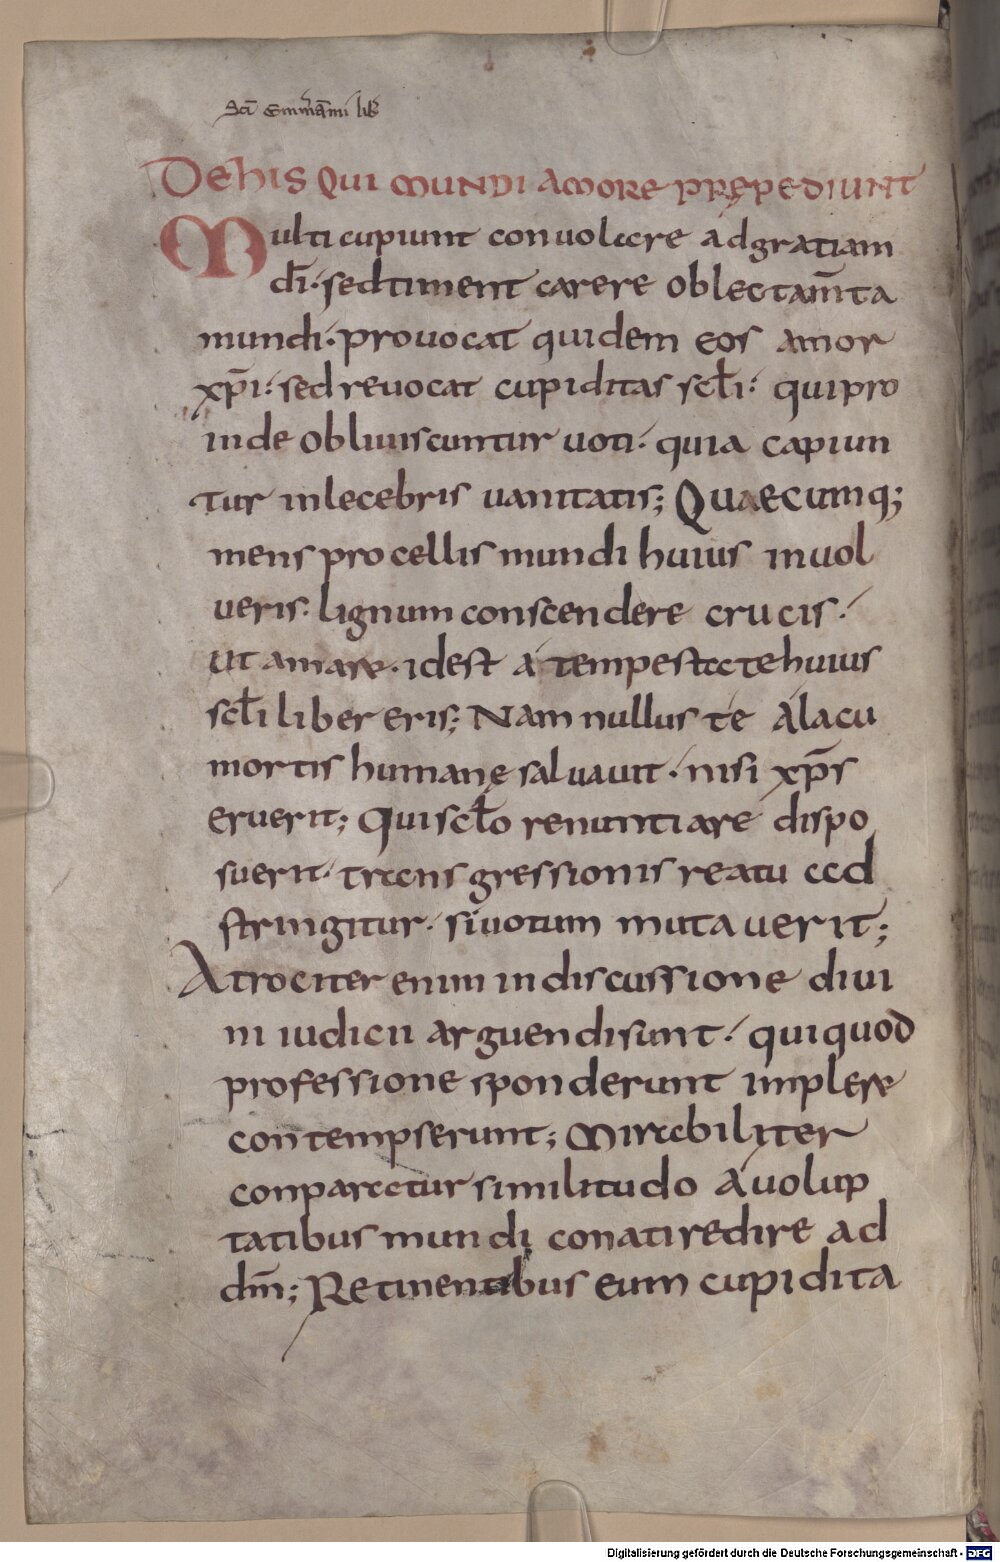 Sci Emmerami lib
De his qui mundi amore prępediunt
Multi cupiunt conuolare ad gratiam
dī· sed timent carere oblectam̄ta
mundi· prouocat quidem eos amor
xp̄i· sed reuocat cupiditas scłi· qui pro
inde obliuiscuntur uoti· quia capiun
tur inlecebris uanitatis; Quaecumq;
mens procellis mundi huius inuol
ueris· lignum conscendere crucis·
ut amare· idest á tempestate huius
scłi liber eris; Nam nullus te á lacu
mortis humanę saluauit· nisi xp̄s
eruerit; Qui scło renuntiare dispo
suerit· transgressionis reatu ad
stringitur· si uotum mutauerit;
Atrociter enim in discussione diui
ni iudicii arguendi sunt· qui quod
professione sponderunt implere
contempserunt; Mirabiliter
conparatur similitudo á uolup
tatibus mundi conati redire ad
dm̄; Retinentibus eum cupidita
Digitalisierung gefördert durch die Deutsche Forschungsgemeinschaft - DFG